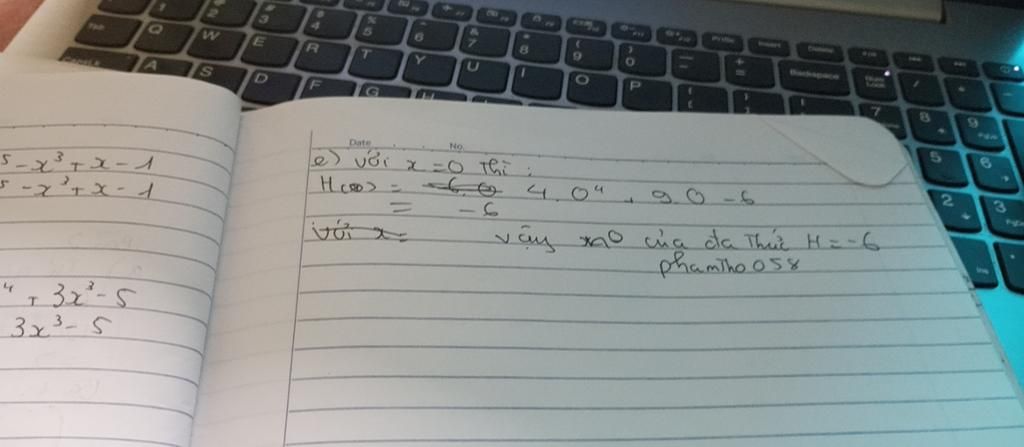 5 - x³ + x - 1
5 - x³ + x - 1
4 + 3x³ - 5
3x³ - 5
Date No.
e) với x = 0 thì :
= 4. 0⁴ + 9.0 - 6
= - 6
với x = vậy của đa thức H = -6
phamtho058
Q W E R T Y U I O P
A S D F G H
Backspace
Num Lock
7 8 9
5 6
2 3